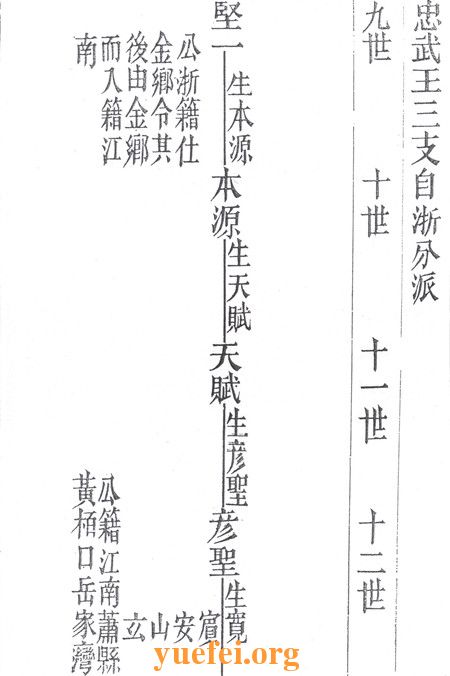 忠武王三支自浙分派
九世
十世
十一世
十二世
堅一
生本源
本源
生天賦
天賦
生彥聖
彥聖
生寬
賓
安
山
玄
公浙籍仕
金鄉令其
後由金鄉
而入籍江
南
公籍江南蕭縣
黃栢口岳家灣
yuefei.org